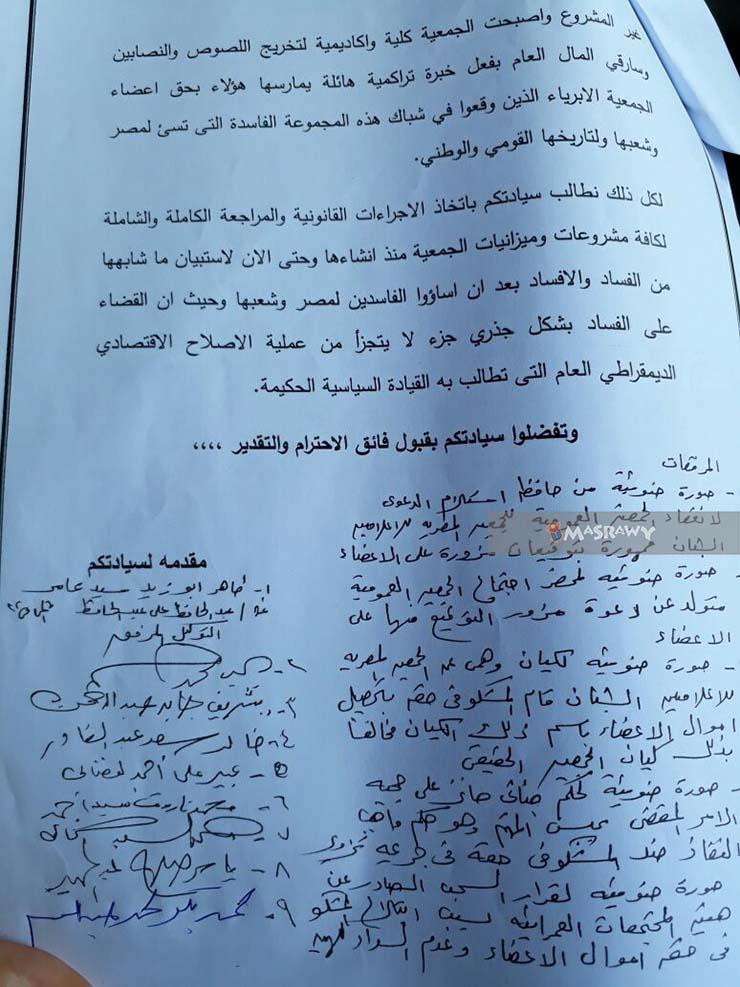 غير المشروع واصبحت الجمعية كلية واكاديمية لتخريج اللصوص والنصابين
وسارقي المال العام بفعل خبرة تراكمية هائلة يمارسها هؤلاء بحق اعضاء
الجمعية الابرياء الذين وقعوا في شباك هذه المجموعة الفاسدة التى تسئ لمصر
وشعبها ولتاريخها القومي والوطني.
لكل ذلك نطالب سيادتكم باتخاذ الاجراءات القانونية والمراجعة الكاملة والشاملة
لكافة مشروعات وميزانيات الجمعية منذ انشاءها وحتى الان لاستبيان ما شابهها
من الفساد والافساد بعد ان اساؤوا الفاسدين لمصر وشعبها وحيث ان القضاء
على الفساد بشكل جذري جزء لا يتجزأ من عملية الاصلاح الاقتصادي
الديمقراطي العام التى تطالب به القيادة السياسية الحكيمة.
وتفضلوا سيادتكم بقبول فائق الاحترام والتقدير ،،،،
المرفقات
- صورة ضوئية من حافظة استلام الدعوى
لانعقاد الجمعية العمومية للجمعية المصرية للاعلاميين
الشبان ممهورة بتوقيعات مزورة على الاعضاء
- صورة ضوئية لمحضر اجتماع الجمعية العمومية
متولد عن دعوة مزور التوقيع منها على
الاعضاء
- صورة ضوئية لكيان وهمى عن الجمعية المصرية
للاعلاميين الشبان قام المشكو فى حقه بتحصيل
اموال الاعضاء باسم ذلك الكيان مخالفا
بذلك كيان الجمعية الحقيقى
- صورة ضوئية لحكم جنائى حائز على حجية
الامر المقضى بحبس المتهم وهو حكم واجب
النفاذ ضد المشكو فى حقه فى جريمة تزوير
صورة ضوئية لقرار السحب الصادر عن
هيئة المجتمعات العمرانية لسبب التالاعب المشكو
فى حقه اموال الاعضاء وعدم السداد للهيئة
مقدمه لسيادتكم
١- طاهر ابو زيد سيد عامر
عنه / عبد الحافظ على عبد الحافظ المحامى
التوكيل المرفق
٢-
٣- شريف جابر عبد الرحمن
٤- خالد سعد عبد القادر
٥- عبير على أحمد
٦- محمد فاروق سيد أحمد
٧-
٨- ياسر صلاح
٩- محمد بكر محمد
MASRAWY